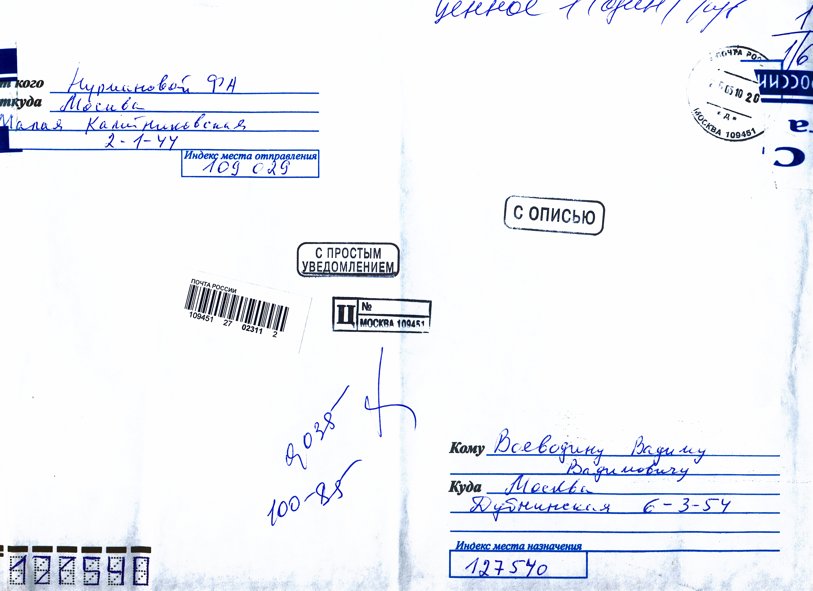 ценное 1 (один) руб
1
1/6
ПОЧТА РОС
05 10 20
"Д"
МОСКВА 109451
РОССИИ
От кого Нурмановой ФА
Откуда Москва
Малая Калитниковская
2-1-44
Индекс места отправления
109 029
С ОПИСЬЮ
С ПРОСТЫМ
УВЕДОМЛЕНИЕМ
ПОЧТА РОССИИ
109451 27 02311 2
Ц №
МОСКВА 109451
0,035
100-85
Кому Воеводину Вадиму
Вадимовичу
Куда Москва
Дубнинская 6-3-54
Индекс места назначения
127540
127540